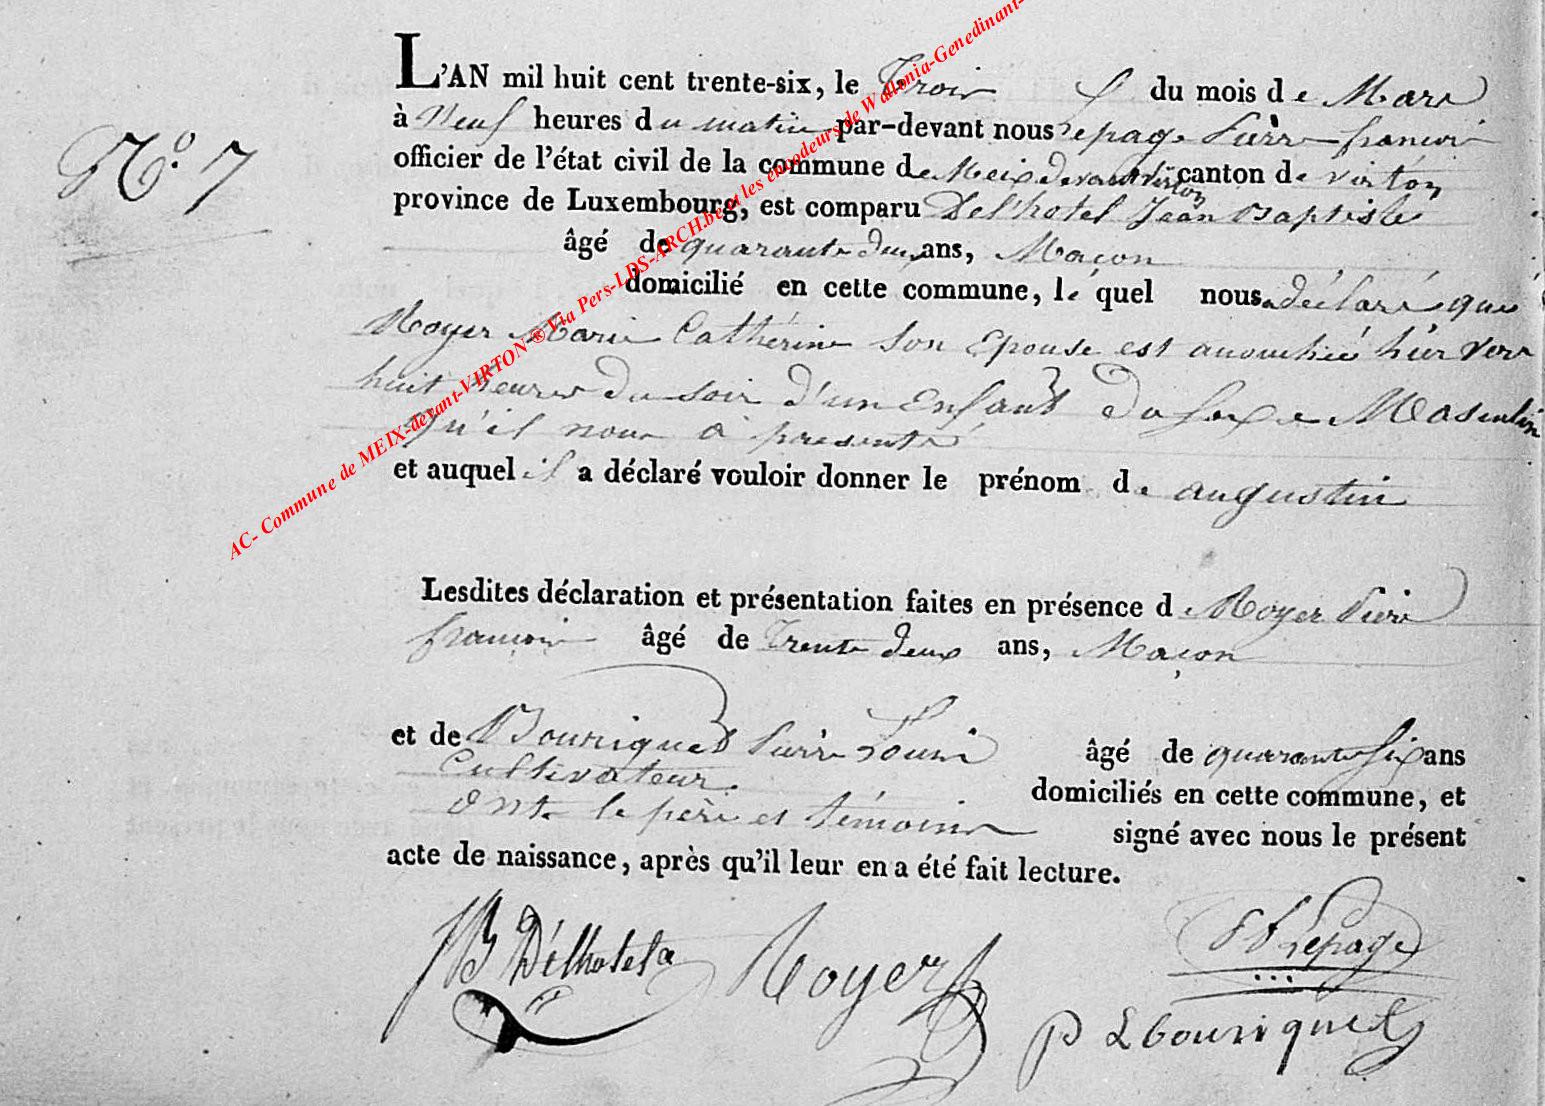 N.º 7
L'AN mil huit cent trente-six, le Trois du mois de Mars
à Neuf heures du matin par-devant nous Lepage Pierre françois
officier de l'état civil de la commune de Meix devant Virton canton de virton
province de Luxembourg, est comparu Delhotel Jean Baptiste
âgé de quarante deux ans, Maçon
domicilié en cette commune, le quel nous a déclaré que
Royer Marie Cathérine son Epouse est accouchée hier vers
huit heures du soir d'un Enfant du sexe Masculin
qu'il nous a presenté
et auquel il a déclaré vouloir donner le prénom de augustin
Lesdites déclaration et présentation faites en présence de Royer Pierre
françois âgé de Trente deux ans, Maçon
et de Bouriguet Pierre Louis âgé de quarante six ans
Cultivateur. domiciliés en cette commune, et
Ont le père et témoins signé avec nous le présent
acte de naissance, après qu'il leur en a été fait lecture.
JB Délhotel Royer PF Lepage
P L bouriguet
AC- Commune de MEIX-devant-VIRTON ® Via Pers-LDS-ARCH.be et les encodeurs de Wallonia-Genedinant-